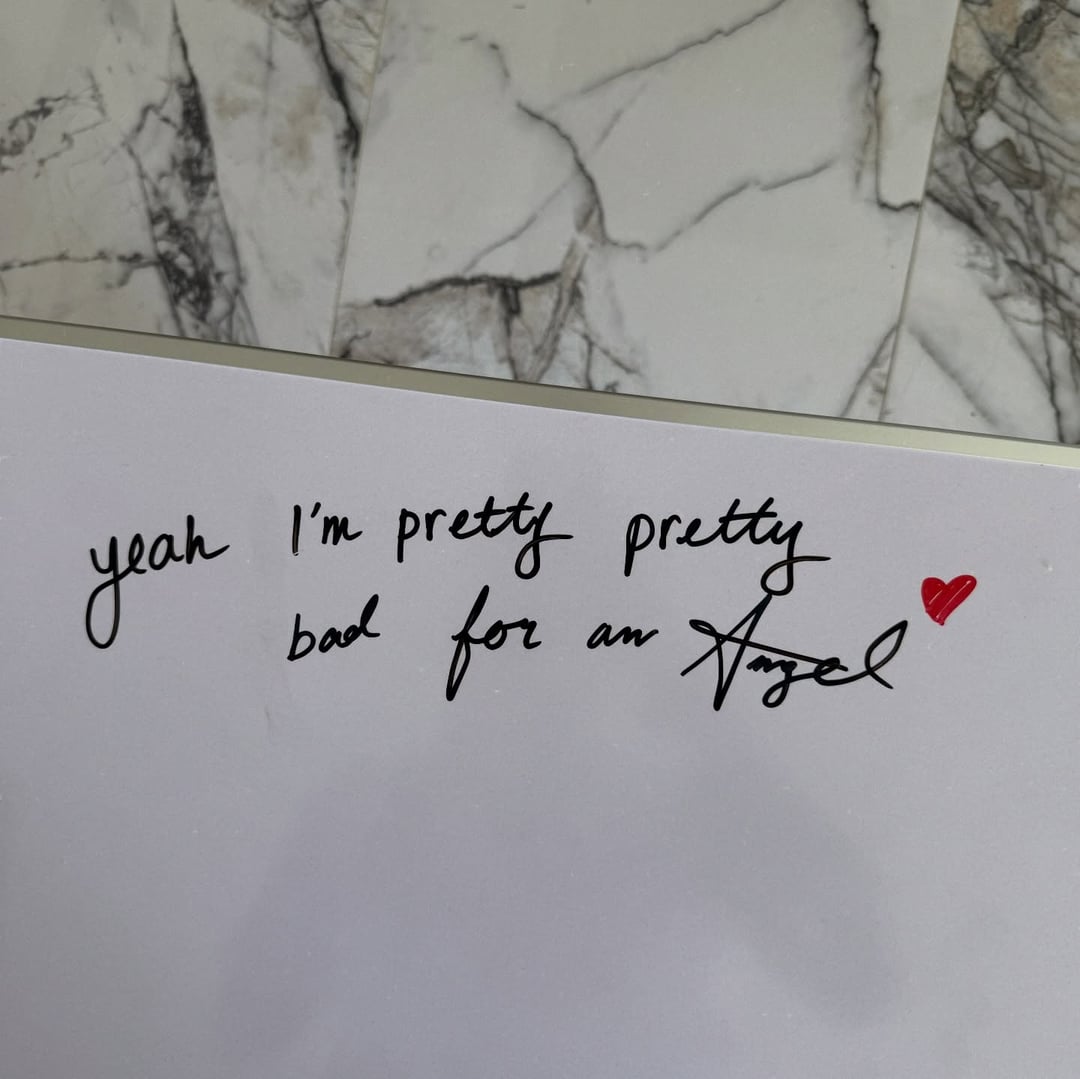 yeah I'm pretty pretty
bad for an Angel